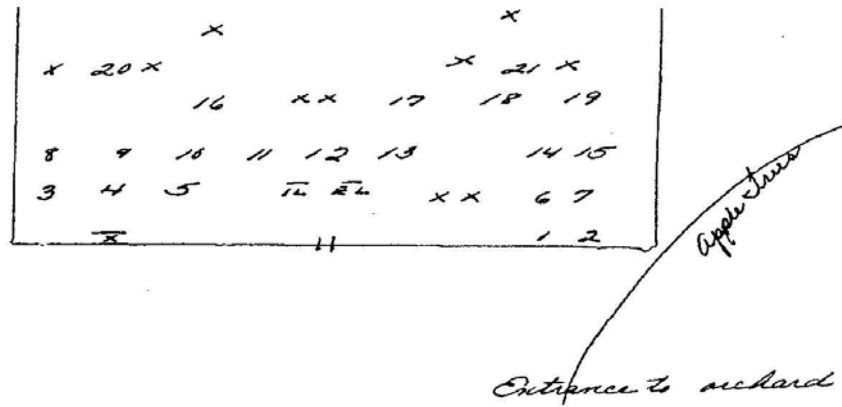 x x
x 20 x x 21 x
16 x x 17 18 19
8 9 10 11 12 13 14 15
3 4 5 x x 6 7
x 1 2
Apple Trees
Entrance to orchard